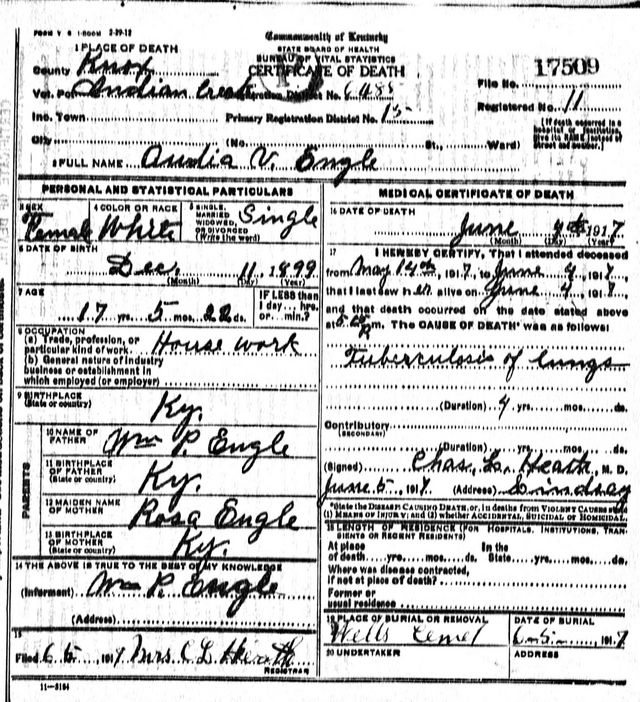 FORM V S 1-500M 2-29-12
Commonwealth of Kentucky
STATE BOARD OF HEALTH
BUREAU OF VITAL STATISTICS
CERTIFICATE OF DEATH
1 PLACE OF DEATH
County Knox
Vot. Pct. Indian Creek Registration District No. 6488
Inc. Town Primary Registration District No. 15
File No. 17509
Registered No. 11
City (No. St., Ward)
(If death occurred in a hospital or institution, give its NAME instead of street and number.)
2 FULL NAME V. Engle
PERSONAL AND STATISTICAL PARTICULARS
3 SEX Female
4 COLOR OR RACE White
5 SINGLE, MARRIED, WIDOWED, OR DIVORCED (Write the word) Single
6 DATE OF BIRTH
Dec. 11, 1899
(Month) (Day) (Year)
7 AGE
17 yrs. 5 mos. 22 ds.
IF LESS than 1 day... hrs. or... min.?
8 OCCUPATION
(a) Trade, profession, or particular kind of work House work
(b) General nature of industry business or establishment in which employed (or employer)
9 BIRTHPLACE (State or country) Ky.
PARENTS
10 NAME OF FATHER Wm P. Engle
11 BIRTHPLACE OF FATHER (State or country) Ky.
12 MAIDEN NAME OF MOTHER Rosa Engle
13 BIRTHPLACE OF MOTHER (State or country) Ky.
14 THE ABOVE IS TRUE TO THE BEST OF MY KNOWLEDGE
(Informant) Wm P. Engle
(Address)
15
Filed 6 5, 1917 Mrs C L Heath
REGISTRAR
11-3184
MEDICAL CERTIFICATE OF DEATH
16 DATE OF DEATH
June 4th 1917
(Month) (Day) (Year)
17 I HEREBY CERTIFY, That I attended deceased
from May 14th, 1917, to June 4, 1917,
that I last saw her alive on June 4, 1917,
and that death occurred on the date stated above
at P.m. The CAUSE OF DEATH* was as follows:
Tuberculosis of lungs
(Duration) 4 yrs. mos. ds.
Contributory (SECONDARY)
(Duration) yrs. mos. ds.
(Signed) Chas. L. Heath, M. D.
June 5, 1917 (Address) Lindsay
*State the DISEASE CAUSING DEATH, or, in deaths from VIOLENT CAUSES state (1) MEANS OF INJURY; and (2) whether ACCIDENTAL, SUICIDAL OR HOMICIDAL.
18 LENGTH OF RESIDENCE (FOR HOSPITALS, INSTITUTIONS, TRANSIENTS OR RECENT RESIDENTS)
At place of death yrs. mos. ds. In the State yrs. mos. ds.
Where was disease contracted, if not at place of death?
Former or usual residence
19 PLACE OF BURIAL OR REMOVAL
Wells Cemet
DATE OF BURIAL
6-5-, 1917
20 UNDERTAKER
ADDRESS